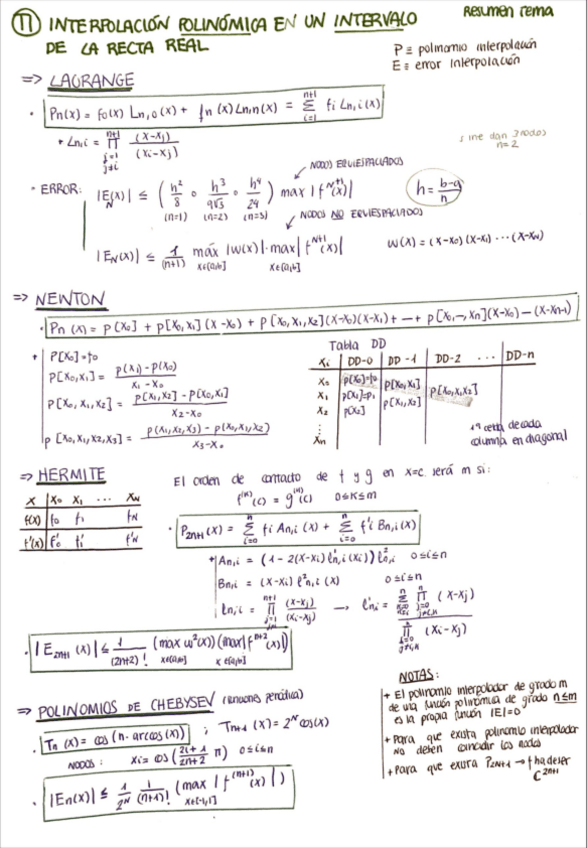 11 INTERPOLACIÓN POLINÓMICA EN UN INTERVALO
DE LA RECTA REAL
Resumen Tema
P ≡ polinomio interpolación
E ≡ error interpolación
=> LAGRANGE
· Pn(x) = f0(x) Ln,0(x) + fn(x) Ln,n(x) = Σ_{i=1}^{n+1} fi Ln,i(x)
+ Ln,i = ∏_{j=1, j≠i}^{n+1} (x-xj)/(xi-xj)
si me dan 3 nodos
n=2
NODOS EQUIESPACIADOS
· ERROR: |E_N(x)| ≤ (h²/8 ∘ h³/9√3 ∘ h⁴/24) max |f^{N+1}(x)|
(n=1) (n=2) (n=3)
h = (b-a)/n
NODOS NO EQUIESPACIADOS
|E_N(x)| ≤ 1/(n+1) máx |w(x)| · max |f^{N+1}(x)|
x∈[a,b] x∈[a,b]
w(x) = (x-x0)(x-x1) ··· (x-xN)
=> NEWTON
· Pn(x) = p[x0] + p[x0,x1](x-x0) + p[x0,x1,x2](x-x0)(x-x1) + --- + p[x0,--,xn](x-x0) -- (x-xn-1)
+ P[x0] = f0
P[x0,x1] = (p(x1) - p(x0))/(x1-x0)
P[x0,x1,x2] = (p[x1,x2] - p[x0,x1])/(x2-x0)
p[x0,x1,x2,x3] = (p(x1,x2,x3) - p(x0,x1,x2))/(x3-x0)
Tabla DD
xi DD-0 DD-1 DD-2 ··· DD-n
x0 p[x0]=f0 p[x0,x1] p[x0,x1,x2]
x1 p[x1]=p1 p[x1,x2]
x2 p[x2]
⋮
xn
1ª celda de cada
columna en diagonal
=> HERMITE
x x0 x1 ··· xN
f(x) f0 f1 fN
f'(x) f'0 f'1 f'N
El orden de contacto de f y g en x=c será m si:
f^(k)(c) = g^(k)(c) 0≤k≤m
· P2n+1(x) = Σ_{i=0}^{n} fi An,i(x) + Σ_{i=0}^{n} f'i Bn,i(x)
+ An,i = (1 - 2(x-xi) ℓ'n,i(xi)) ℓ²n,i 0≤i≤n
Bn,i = (x-xi) ℓ²n,i(x) 0≤i≤n
ℓn,i = ∏_{j=1}^{n+1} (x-xj)/(xi-xj) → ℓ'n,i = Σ ∏ (x-xj) / ∏ (xi-xj)
· |E2n+1(x)| ≤ 1/(2n+2)! (max w²(x))(max |f^{n+2}(x)|)
x∈[a,b] x∈[a,b]
=> POLINOMIOS DE CHEBYSEV (funciones periódica)
· Tn(x) = cos(n· arcos(x)) ; Tn+1(x) = 2^N cos(x)
NODOS: xi = cos((2i+1)/(2n+2) π) 0≤i≤n
· |En(x)| ≤ 1/2^N 1/(n+1)! (max |f^(n+1)(x)|)
x∈[-1,1]
NOTAS:
+ El polinomio interpolador de grado m
de una función polinómica de grado n≤m
es la propia función |E|=0
+ Para que exista polinomio interpolador
NO deben coincidir los nodos
+ Para que exista P2N+1 → f ha de ser
C^{2n+1}